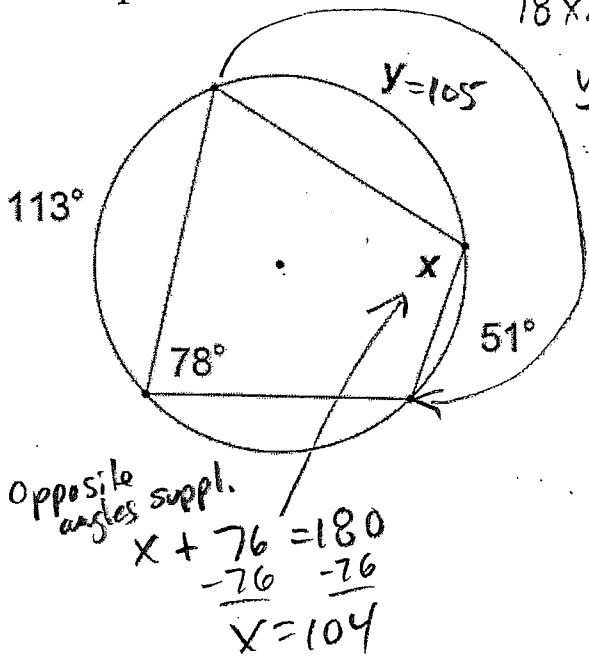 78 x 2
y
y=105
113°
x
51°
78°
Opposite
angles suppl.
x + 76 = 180
-76 -76
x = 104